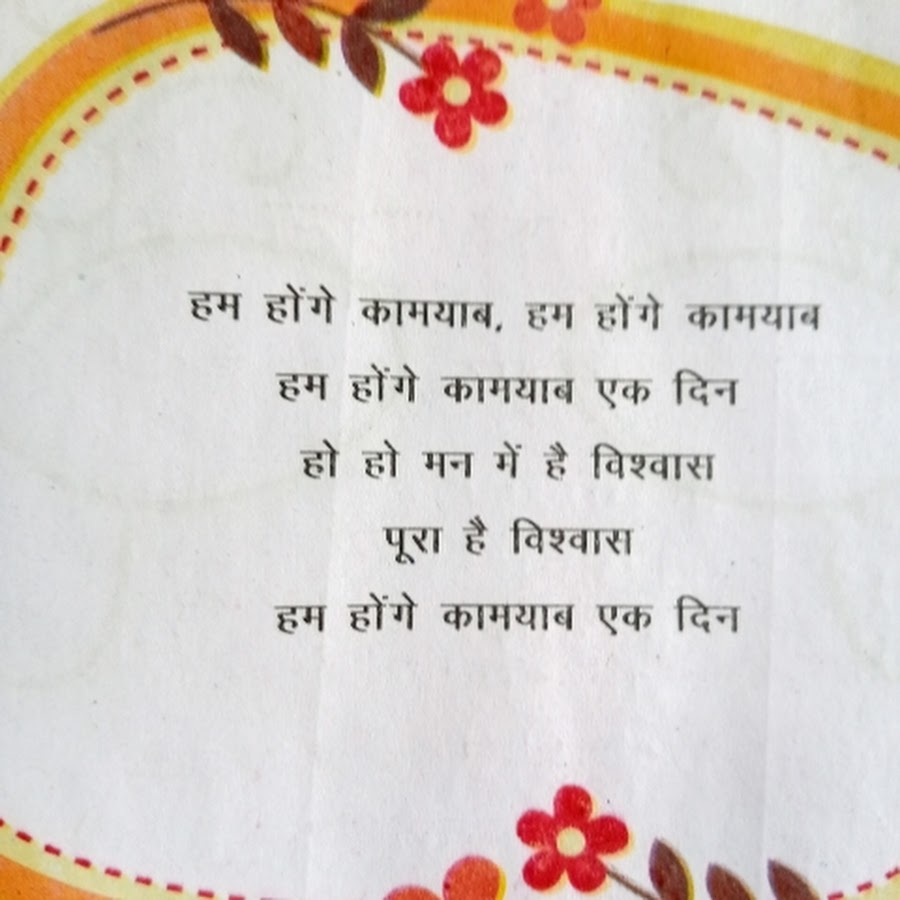 हम होंगे कामयाब, हम होंगे कामयाब
हम होंगे कामयाब एक दिन
हो हो मन में है विश्वास
पूरा है विश्वास
हम होंगे कामयाब एक दिन